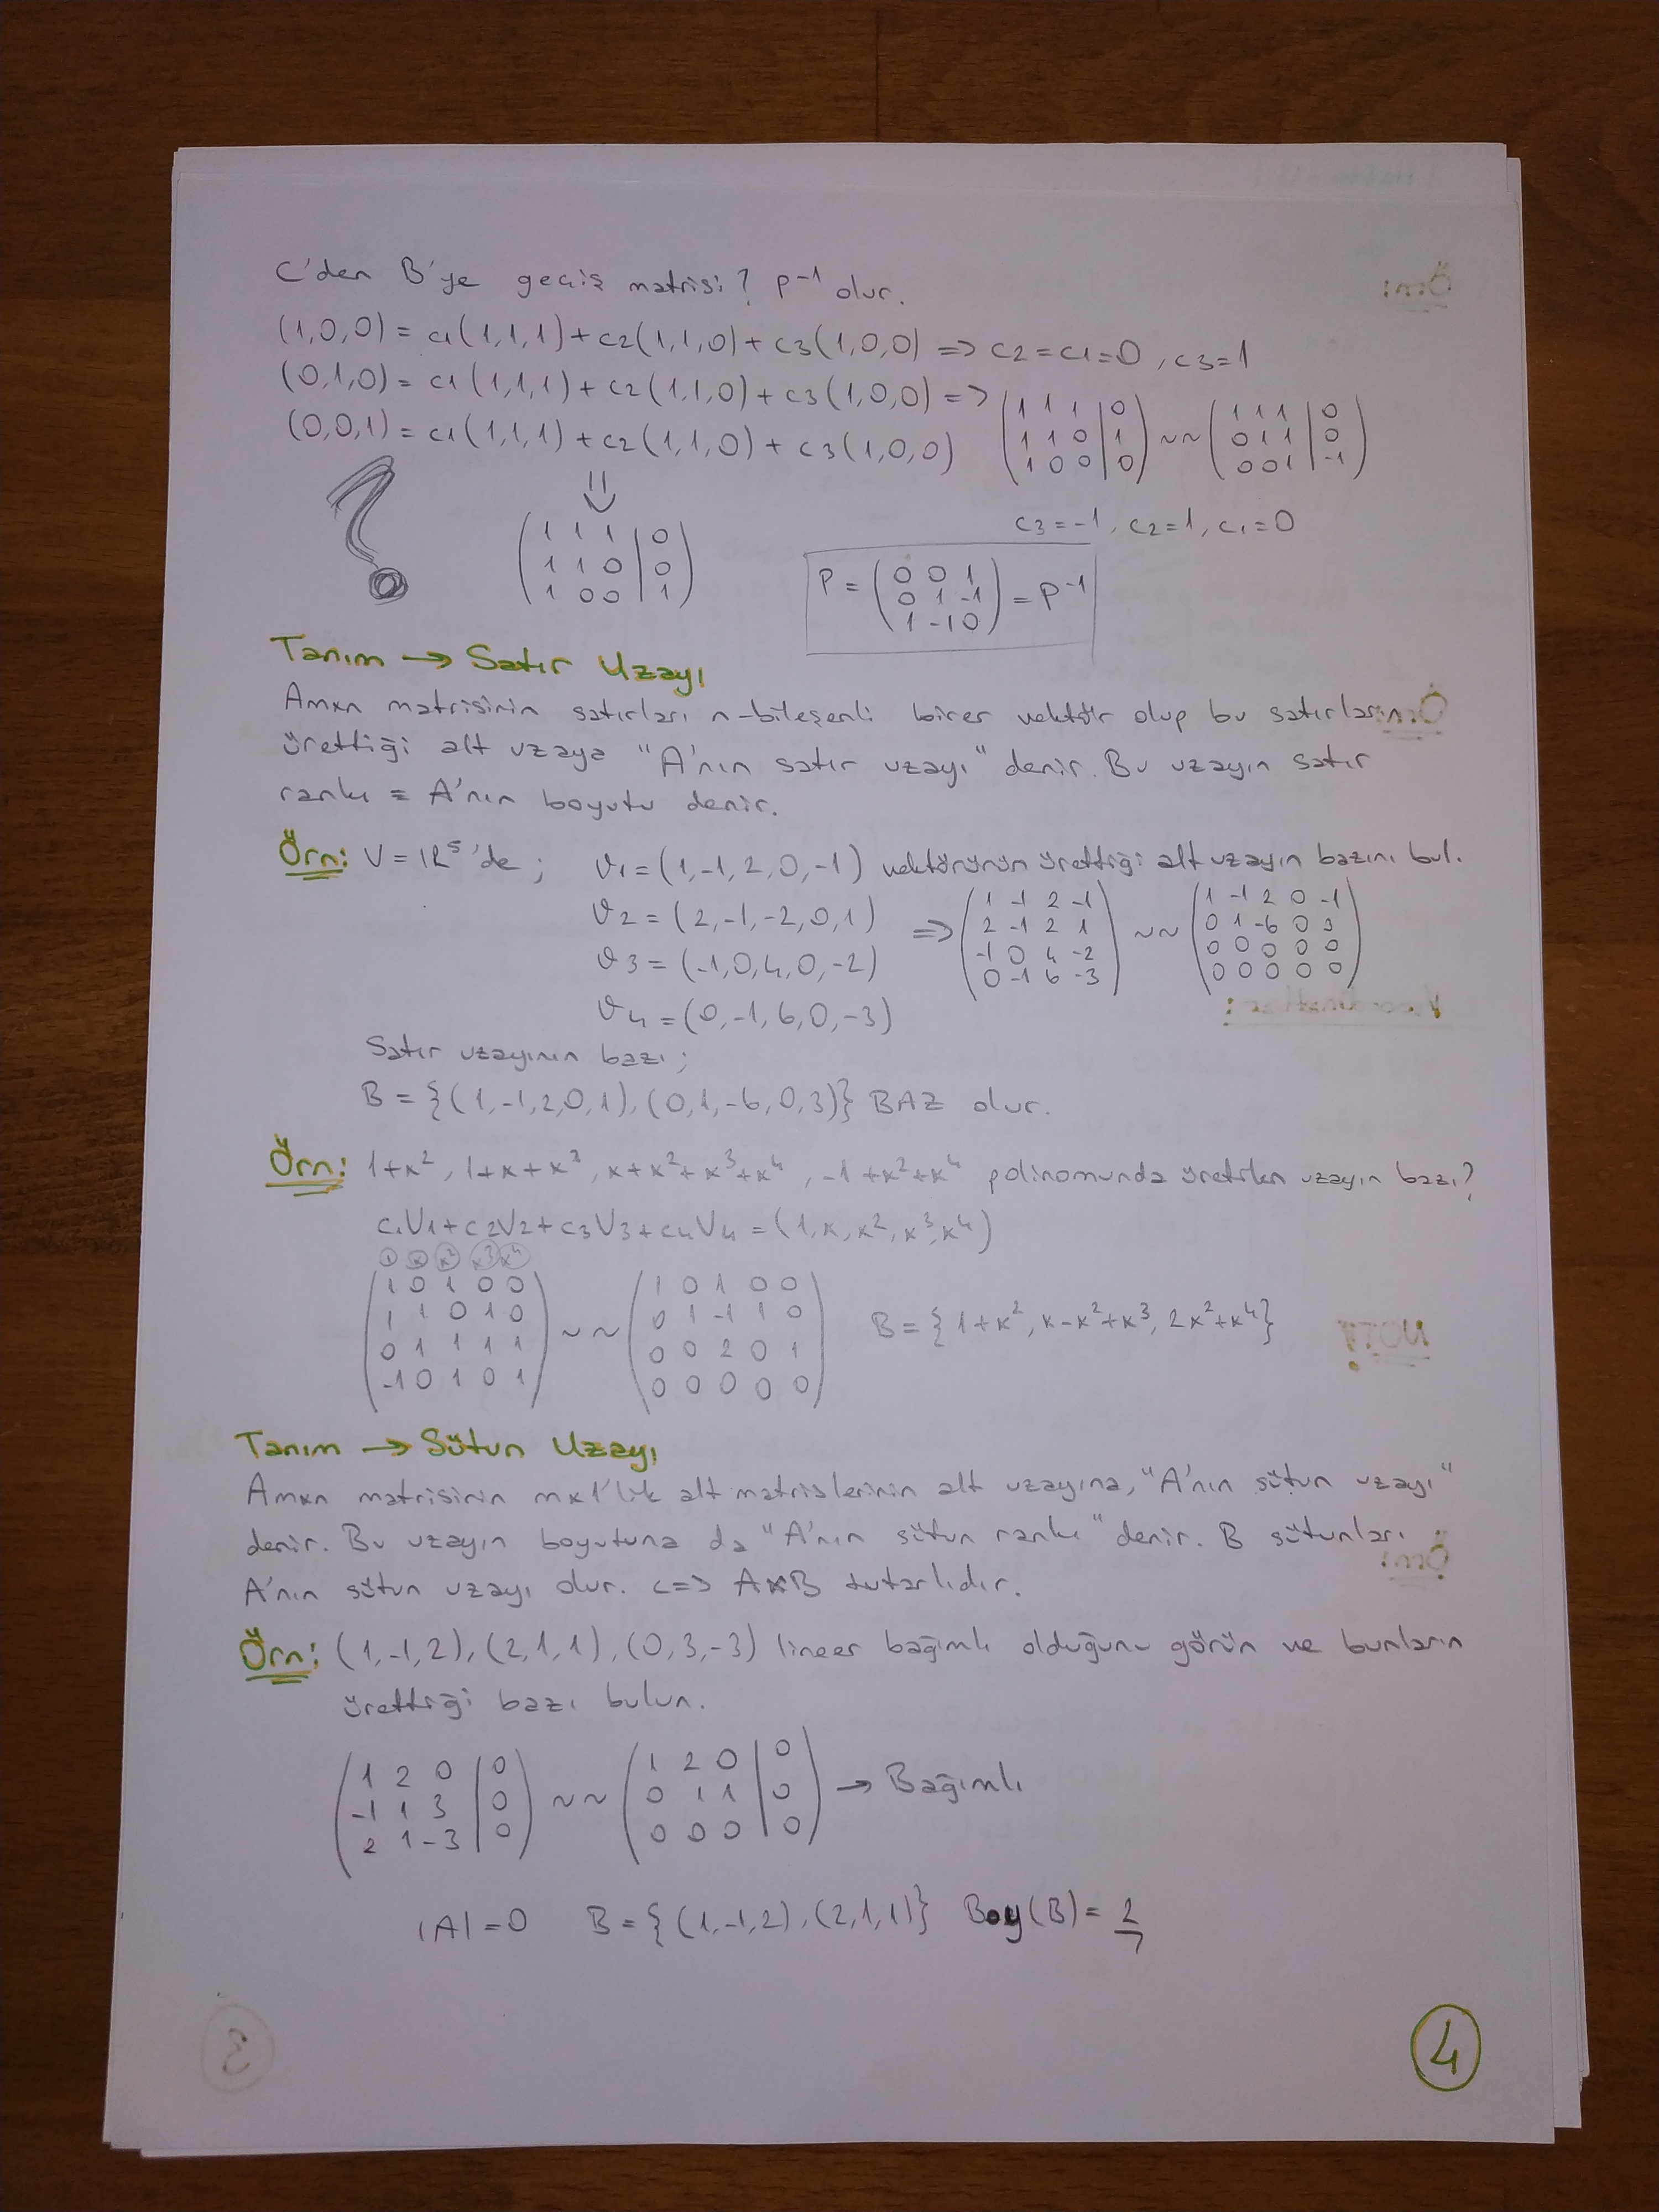 C'den B'ye geçiş matrisi? P⁻¹ dur.
(1,0,0) = c1(1,1,1)+c2(1,1,0)+c3(1,0,0) => c2=c1=0, c3=1
(0,1,0) = c1(1,1,1)+c2(1,1,0)+c3(1,0,0) => (1 1 1 | 0
1 1 0 | 1
1 0 0 | 0) ~~ (1 1 1 | 0
0 1 1 | 0
0 0 1 | -1)
(0,0,1) = c1(1,1,1)+c2(1,1,0)+c3(1,0,0)
c3=-1, c2=1, c1=0
(1 1 1 | 0
1 1 0 | 0
1 0 0 | 1)
P = (0 0 1
0 1 -1
1 -1 0) = P⁻¹
Tanım → Satır Uzayı
Amxn matrisinin satırları n-bileşenli birer vektör olup bu satırların
ürettiği alt uzaya "A'nın satır uzayı" denir. Bu uzayın satır
rankı = A'nın boyutu denir.
Örn: V=IR⁵'de; v1=(1,-1,2,0,-1) vektörünün ürettiği alt uzayın bazını bul.
v2=(2,-1,-2,0,1)
v3=(-1,0,4,0,-2)
v4=(0,-1,6,0,-3)
=> (1 -1 2 -1
2 -1 2 1
-1 0 4 -2
0 -1 6 -3) ~~ (1 -1 2 0 -1
0 1 -6 0 3
0 0 0 0 0
0 0 0 0 0)
Satır uzayının bazı;
B={(1,-1,2,0,1),(0,1,-6,0,3)} BAZ olur.
Örn: 1+x², 1+x+x³, x+x²+x³+x⁴, -1+x²+x⁴ polinomunda üretilen uzayın bazı?
c1V1+c2V2+c3V3+c4V4=(1,x,x²,x³,x⁴)
1 x x² x³ x⁴
(1 0 1 0 0
1 1 0 1 0
0 1 1 1 1
-1 0 1 0 1) ~~ (1 0 1 0 0
0 1 -1 1 0
0 0 2 0 1
0 0 0 0 0) B={1+x², x-x²+x³, 2x²+x⁴}
Tanım → Sütun Uzayı
Amxn matrisinin mx1'lik alt matrislerinin alt uzayına, "A'nın sütun uzayı"
denir. Bu uzayın boyutuna da "A'nın sütun rankı" denir. B sütunları
A'nın sütun uzayı dur. <=> AxB tutarlıdır.
Örn: (1,-1,2),(2,1,1),(0,3,-3) lineer bağımlı olduğunu görün ve bunların
ürettiği bazı bulun.
(1 2 0 | 0
-1 1 3 | 0
2 1 -3 | 0) ~~ (1 2 0 | 0
0 1 1 | 0
0 0 0 | 0) → Bağımlı
|A|=0 B={(1,-1,2),(2,1,1)} Boy(B)=2
4
3